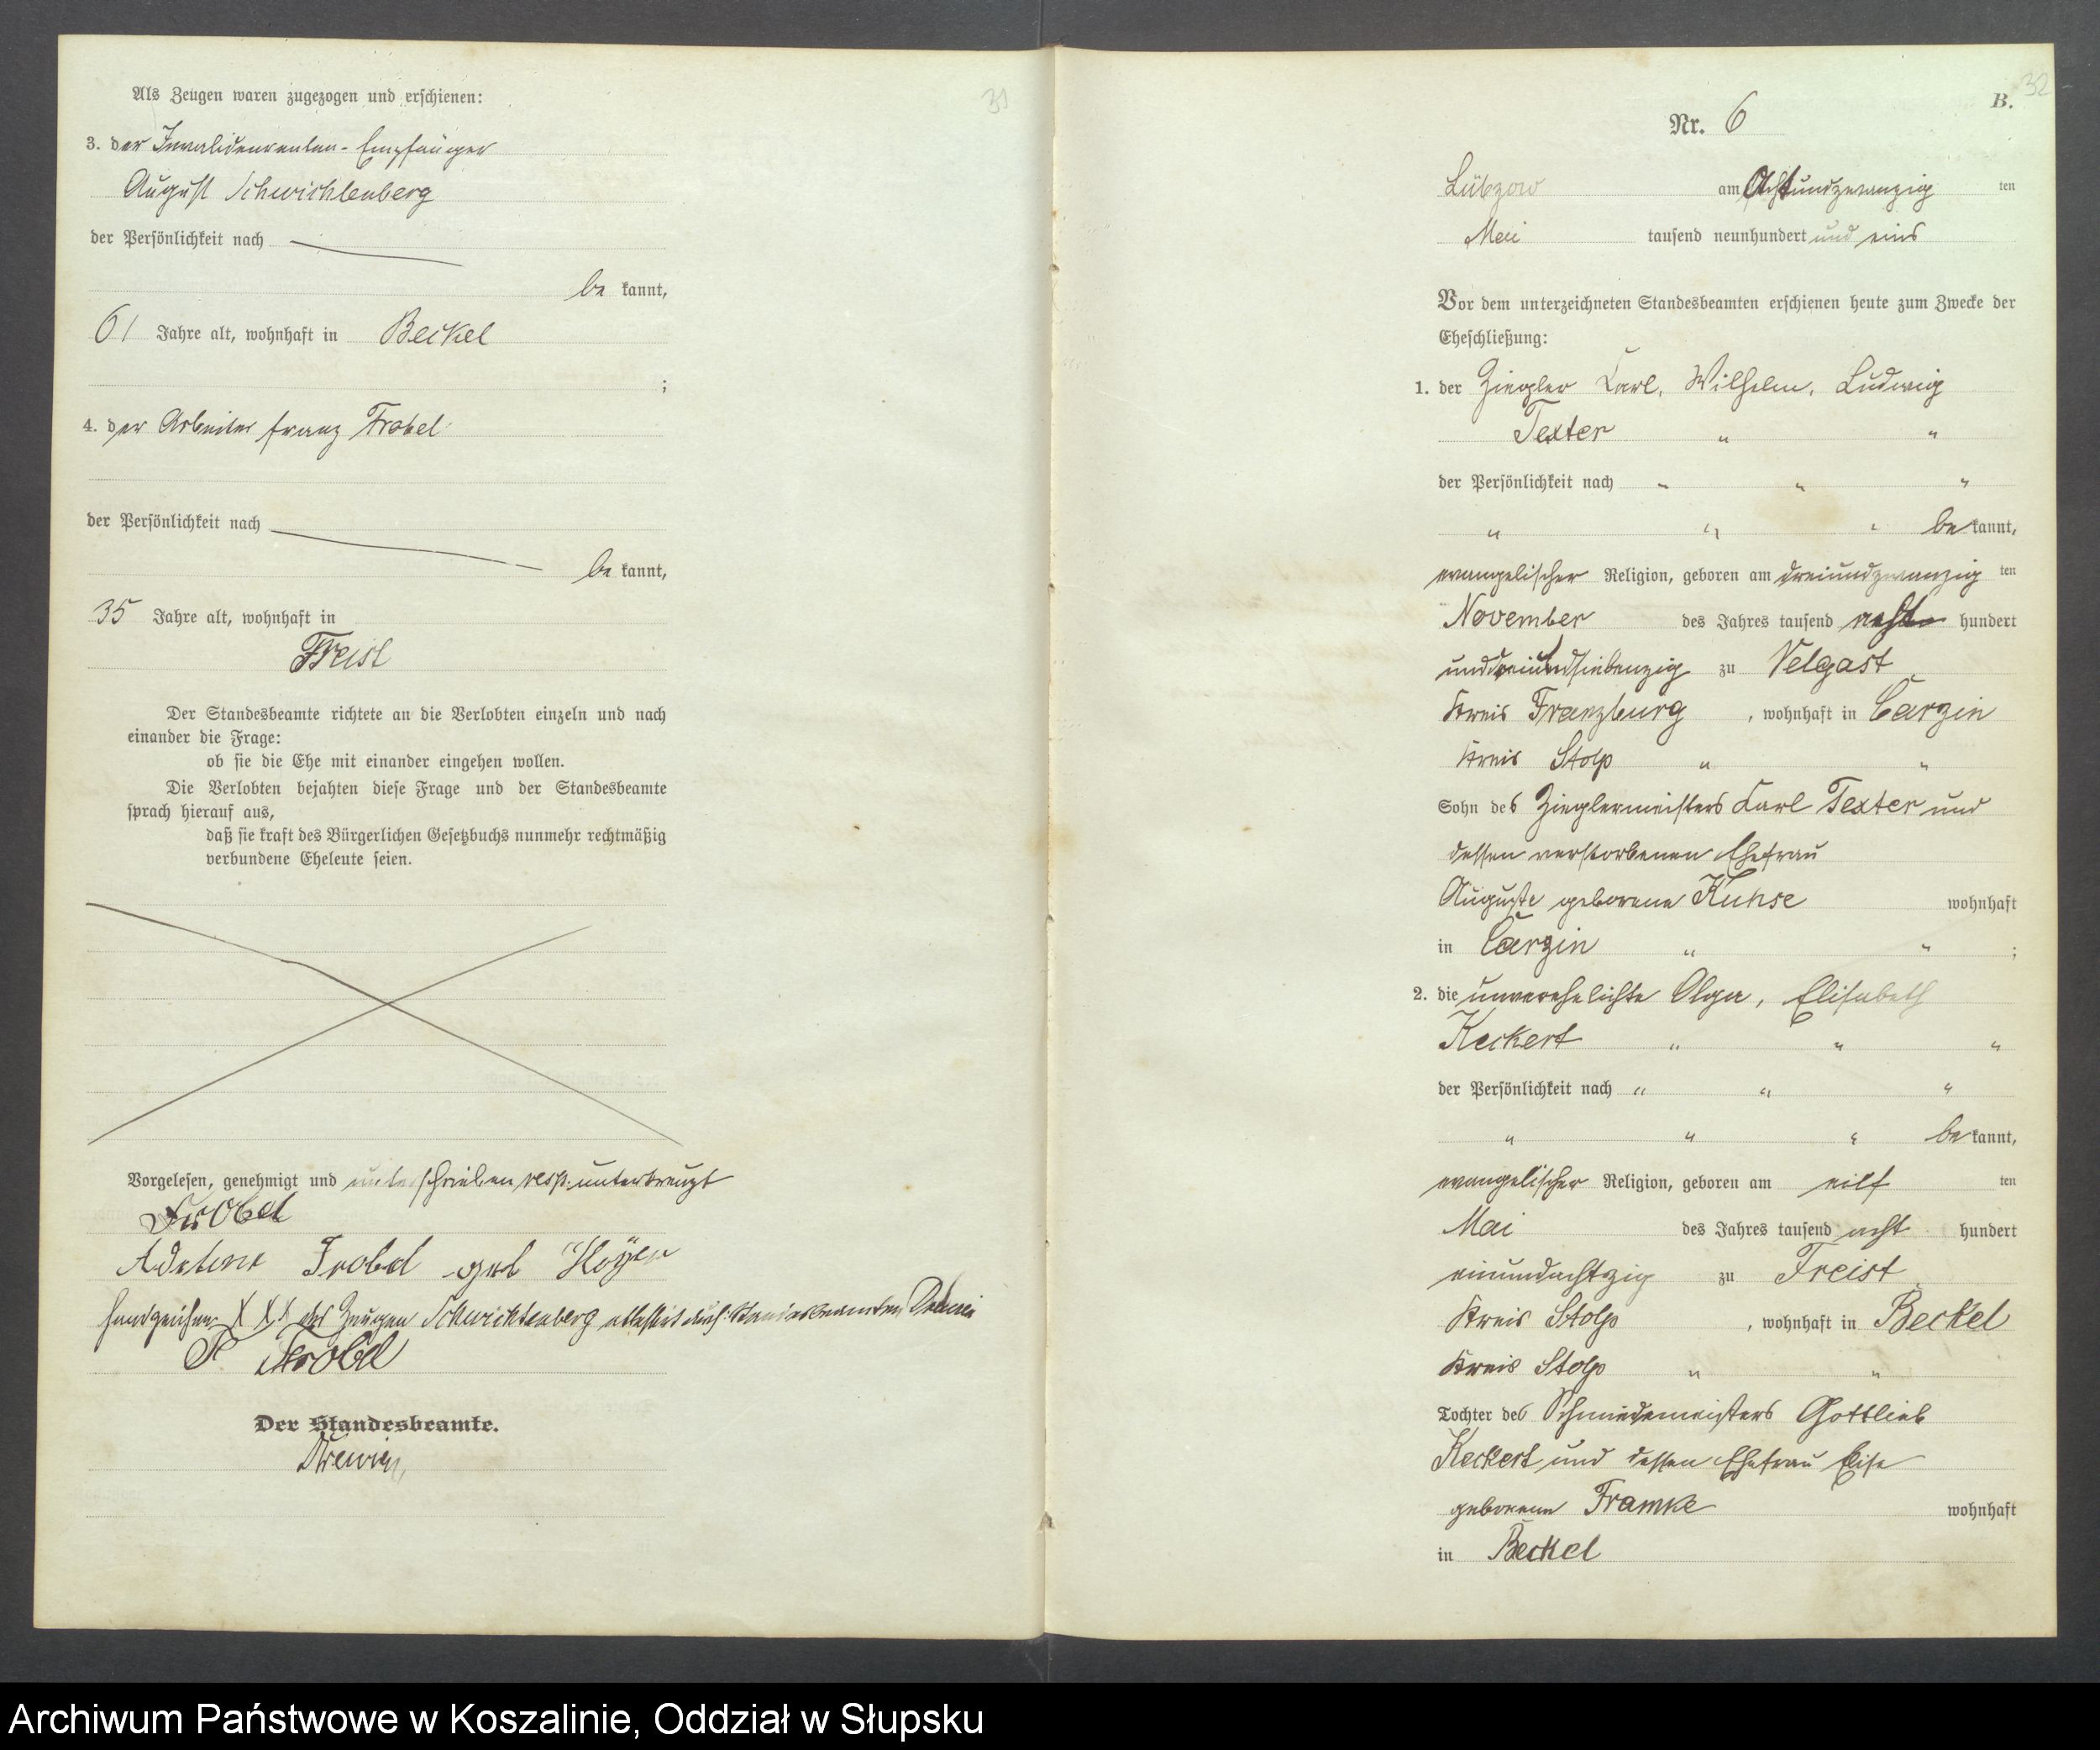 Als Zeugen waren zugezogen und erschienen:
3. der Invalidenrenten-Empfänger
August Schwichtenberg
der Persönlichkeit nach
be kannt,
61 Jahre alt, wohnhaft in Beckel
;
4. der Arbeiter Franz Frobel
der Persönlichkeit nach
be kannt,
35 Jahre alt, wohnhaft in
Freist
Der Standesbeamte richtete an die Verlobten einzeln und nach
einander die Frage:
ob sie die Ehe mit einander eingehen wollen.
Die Verlobten bejahten diese Frage und der Standesbeamte
sprach hierauf aus,
daß sie kraft des Bürgerlichen Gesetzbuchs nunmehr rechtmäßig
verbundene Eheleute seien.
Vorgelesen, genehmigt und unterschrieben resp. unterkreuzt
Frobel
Frobel geb
Handzeichen X X X des Zeugen Schwichtenberg attestirt durch Standesbeamten
Frobel
Der Standesbeamte.
31
32
B.
Nr. 6
Lübzow am Achtundzwanzig ten
Mai tausend neunhundert und eins
Vor dem unterzeichneten Standesbeamten erschienen heute zum Zwecke der
Eheschließung:
1. der Ziegler Karl, Wilhelm, Ludwig
Texter " "
der Persönlichkeit nach " " "
" " " be kannt,
evangelischer Religion, geboren am dreiundzwanzig ten
November des Jahres tausend acht hundert
unddreiundsiebenzig zu Velgast
Kreis Franzburg, wohnhaft in Carzin
Kreis Stolp " "
Sohn des Zieglermeisters Karl Texter und
dessen verstorbenen Ehefrau
Auguste geborene Kuhse wohnhaft
in Carzin " " ;
2. die unverehelichte Olga, Elisabeth
Keckert " " "
der Persönlichkeit nach " " "
" " " be kannt,
evangelischer Religion, geboren am eilf ten
Mai des Jahres tausend acht hundert
einundachtzig zu Freist
Kreis Stolp, wohnhaft in Beckel
Kreis Stolp " "
Tochter des Schmiedemeisters Gottlieb
Keckert und dessen Ehefrau Elise
geborene Framke wohnhaft
in Beckel
Archiwum Państwowe w Koszalinie, Oddział w Słupsku